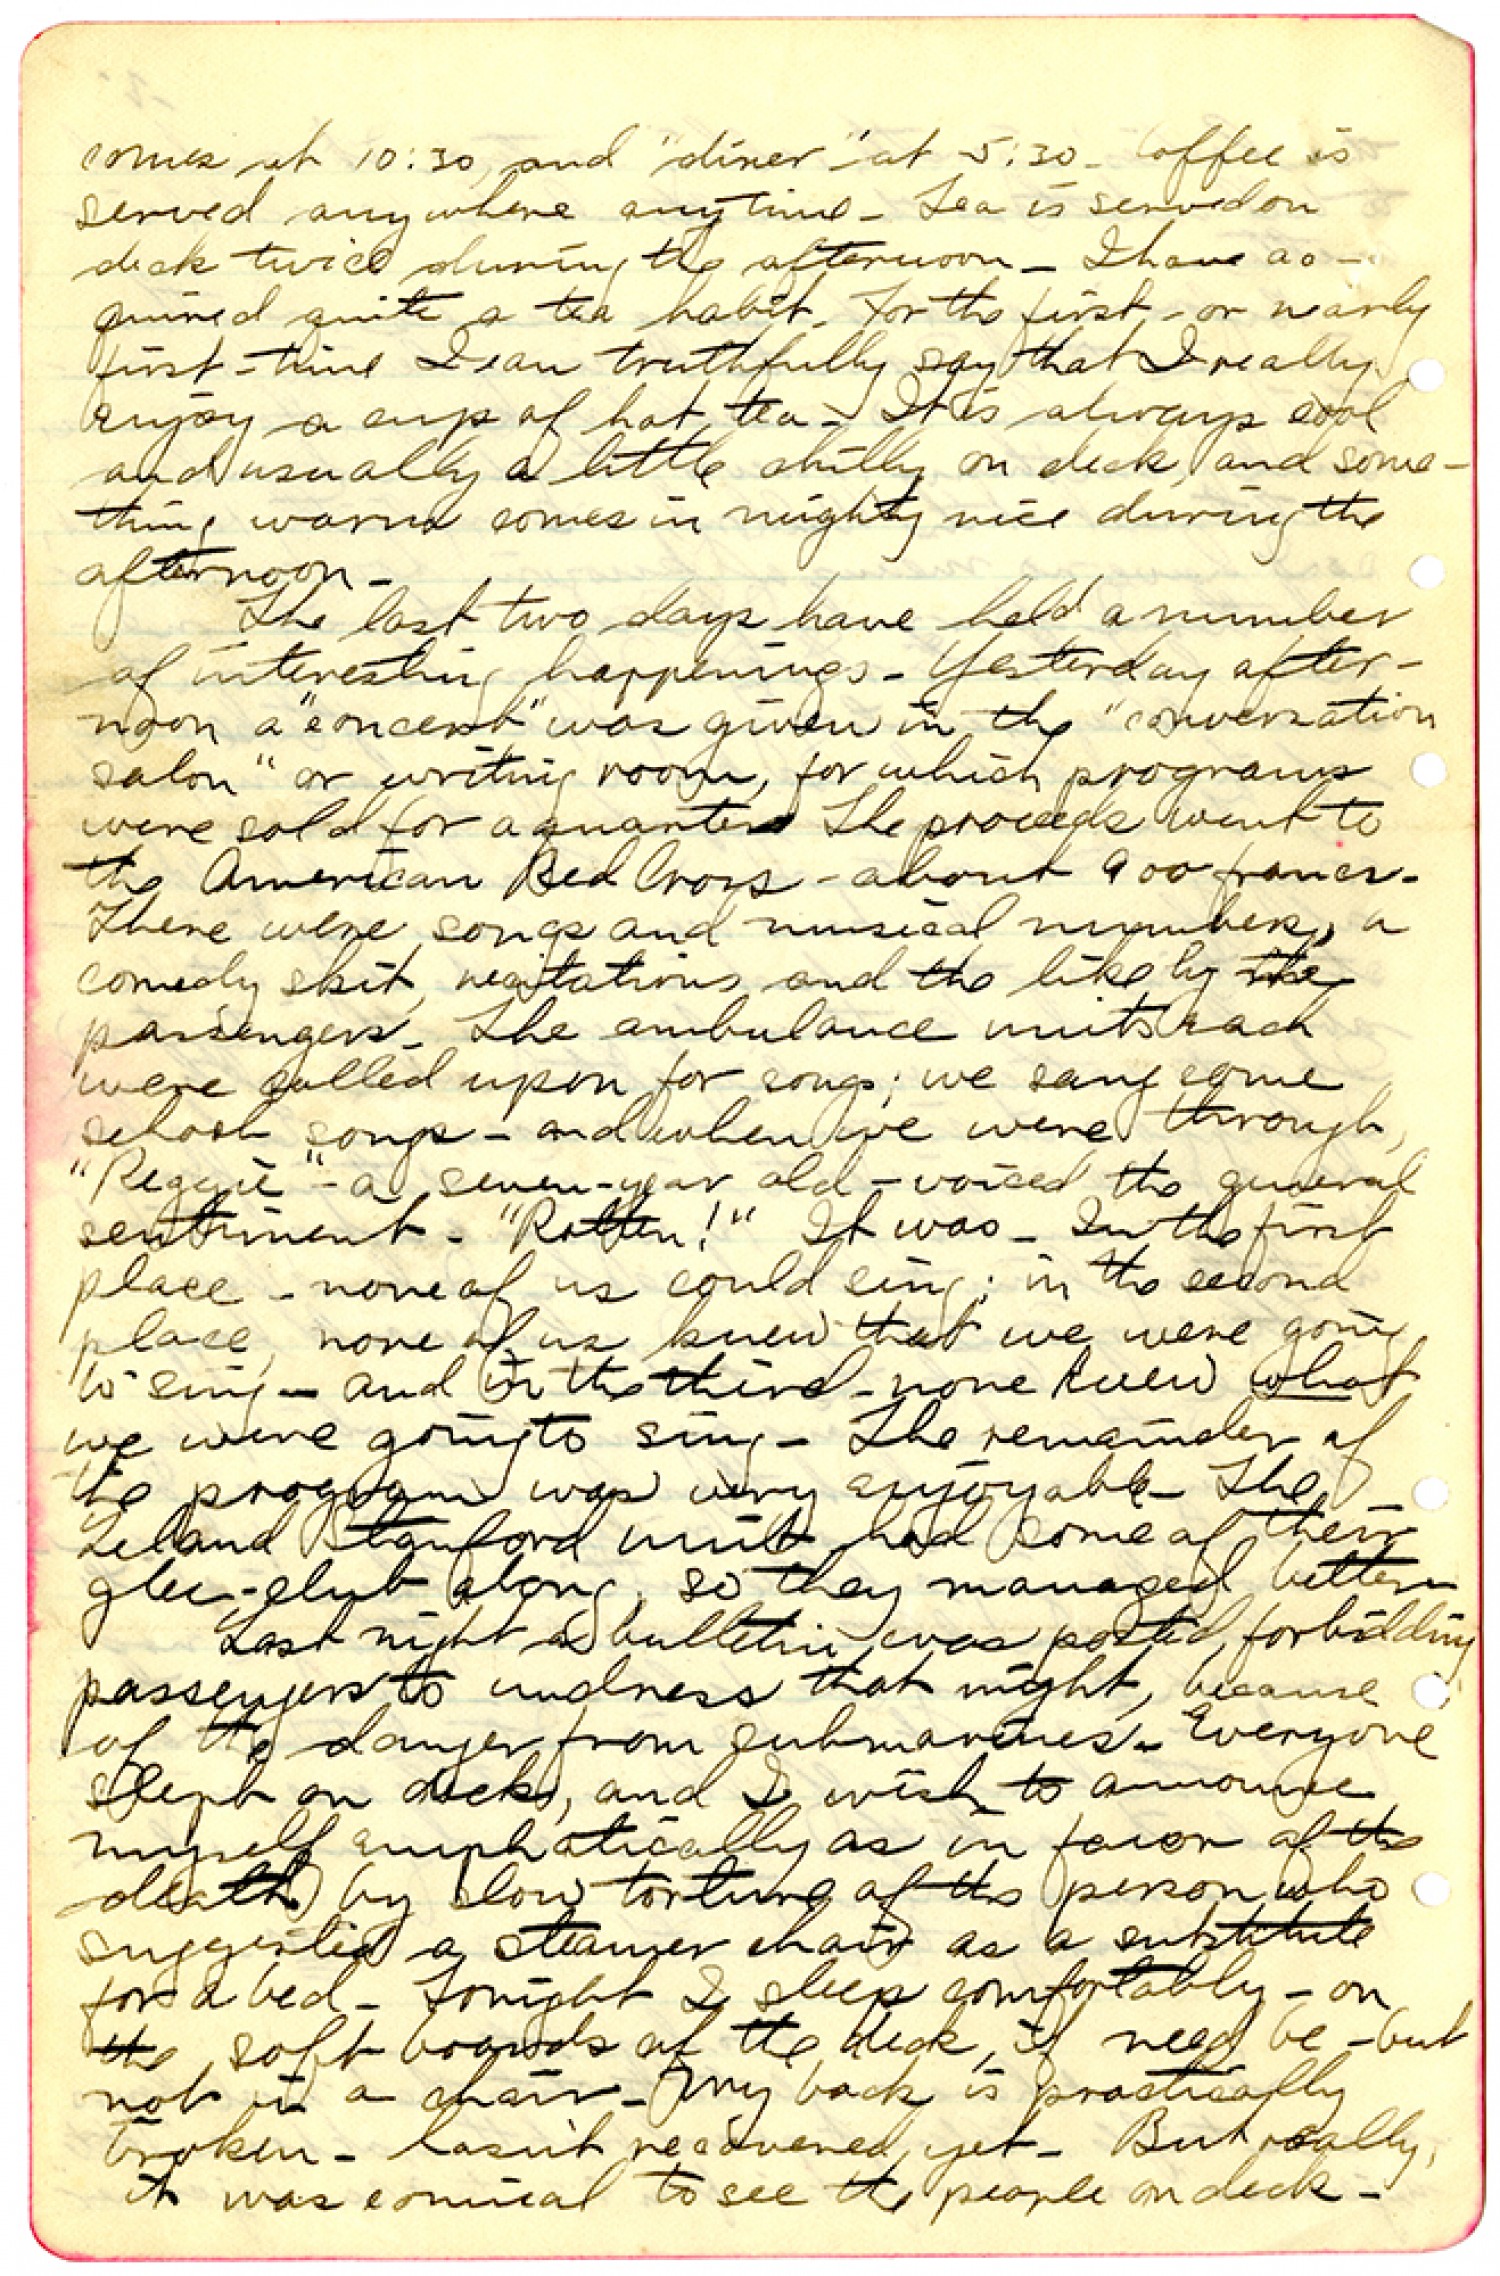 comes at 10:30, and "diner" at 5:30 - Coffee is
served anywhere anytime - Tea is served on
deck twice during the afternoon - I have ac-
quired quite a tea habit. For the first - or nearly
first - time I can truthfully say that I really
enjoy a cup of hot tea - It is always cool
and usually a little chilly on deck, and some-
thing warm comes in mighty nice during the
afternoon -
The last two days have held a number
of interesting happenings - Yesterday after-
noon a "concert" was given in the "conversation
salon" or writing room, for which programs
were sold for a quarter. The proceeds went to
the American Red Cross - about 900 francs -
There were songs and musical numbers, a
comedy skit, recitations and the like by the
passengers - The ambulance units each
were called upon for songs; we sang some
school songs - and when we were through,
"Reggie" - a seven-year old - voiced the general
sentiment - "Rotten!" It was - In the first
place - none of us could sing; in the second
place, none of us knew that we were going
to sing - and in the third - none knew what
we were going to sing - The remainder of
the program was very enjoyable - The
Leland Stanford unit had some of their
glee-club along, so they managed better -
Last night a bulletin was posted, forbidding
passengers to undress that night, because
of the danger from submarines - Everyone
slept on deck, and I wish to announce
myself emphatically as in favor of the
death by slow torture of the person who
suggested a steamer chair as a substitute
for a bed - Tonight I sleep comfortably - on
the soft boards of the deck, if need be - but
not in a chair - My back is practically
broken - hasn't recovered yet - But really,
it was comical to see the people on deck -